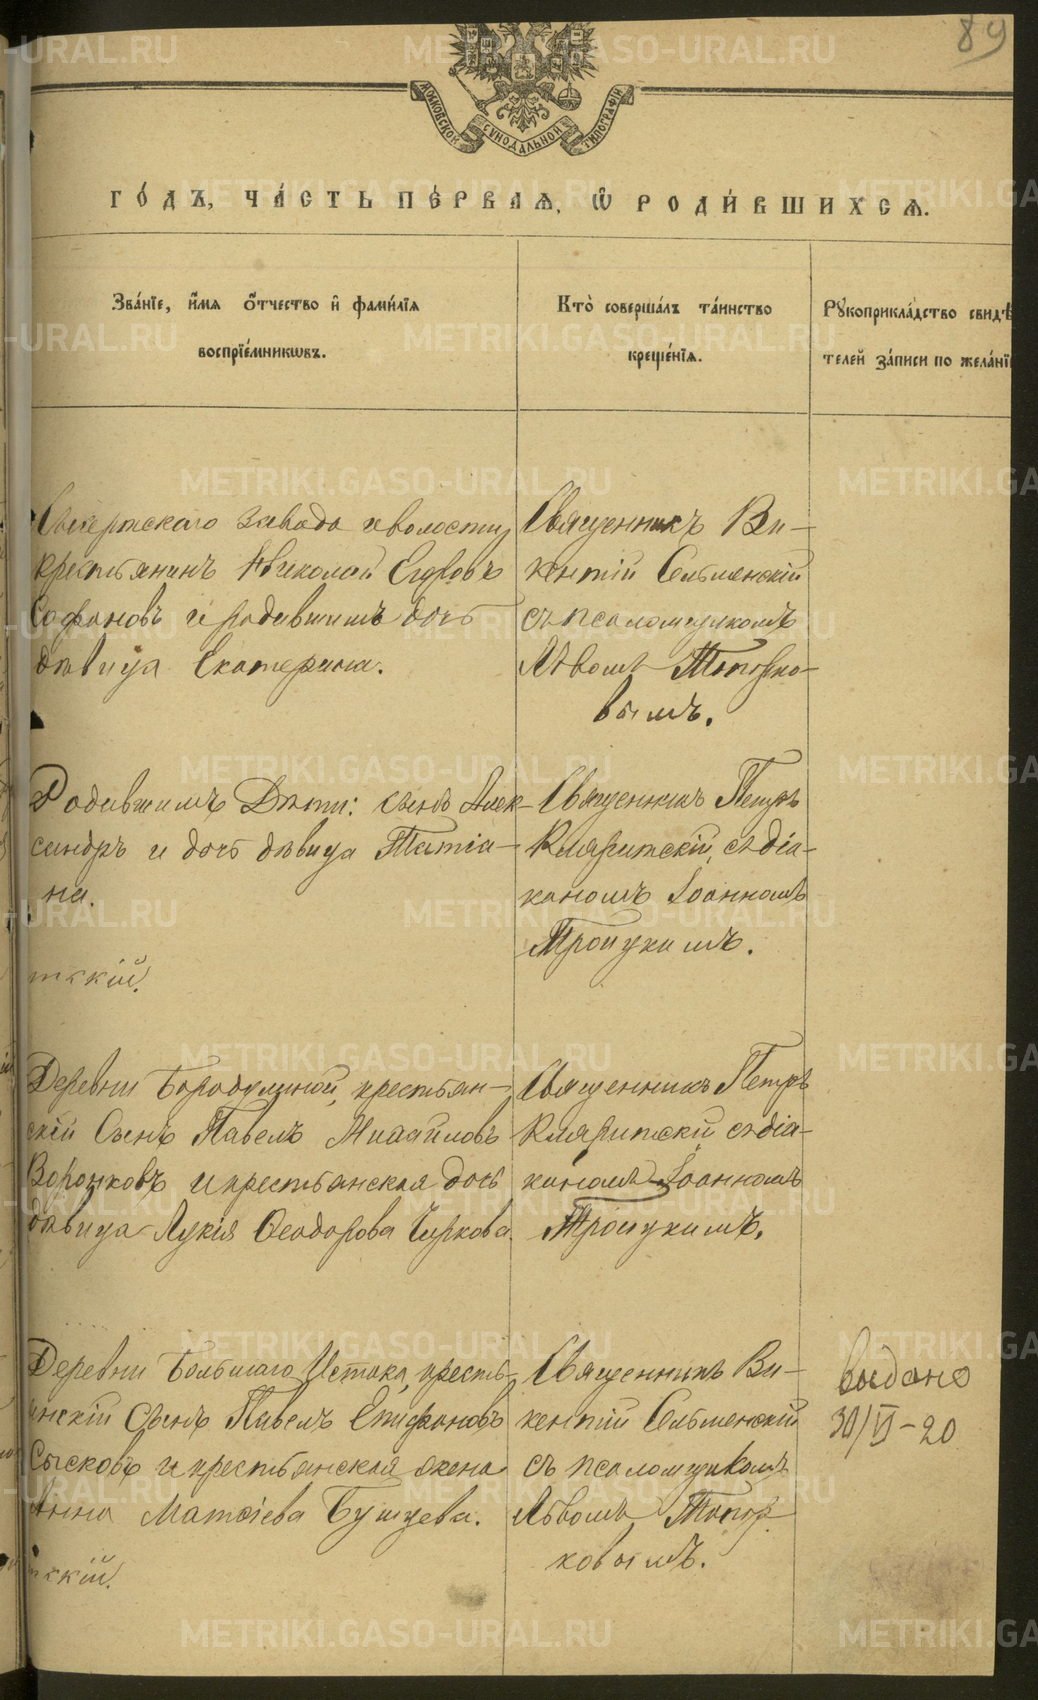 89
МОСКОВСКОЙ СѴНОДАЛЬНОЙ ТИПОГРАФІИ
ГО́ДЪ, ЧА́СТЬ ПЕ́РВАѦ, Ѡ҆ РОДИ́ВШИХСѦ.
Зва́нїе, и҆́мя ѻ҆́тчество и҆ фами́лїя
воспрїе́мникѡвъ.
Кто̀ соверша́лъ та́инство
креще́нїя.
Рꙋкоприкла́дство свидѣ
телей за́писи по жела́нї
Сысертскаго завода и волости
крестьянинъ Николай Егоровъ
Сафоновъ и родившимъ дочь
дѣвица Екатерина.
Священникъ Ви-
кентій Сельменскій
съ псаломщикомъ
Львомъ Топорко-
вымъ.
Родившимъ Дѣти: сынъ Алек-
сандръ и дочь дѣвица Татіа-
на.
тскій.
Священникъ Петръ
Кляритскій, съ діа-
кономъ Іоанномъ
Троицкимъ.
Деревни Бородулиной, крестьян-
скій Сынъ Павелъ Михайловъ
Воронковъ и крестьянская дочь
дѣвица Лукія Ѳеодорова Чиркова.
Священникъ Петръ
Кляритскій съ діа-
кономъ Іоанномъ
Троицкимъ.
Деревни Большаго Истока, кресть-
янскій Сынъ Павелъ Епифановъ
Сысковъ и крестьянская жена
Анна Матѳіева
тскій.
Священникъ Ви-
кентій Сельменскій
съ псаломщикомъ
Львомъ Топор
ковымъ.
Выдано
30/VI-20